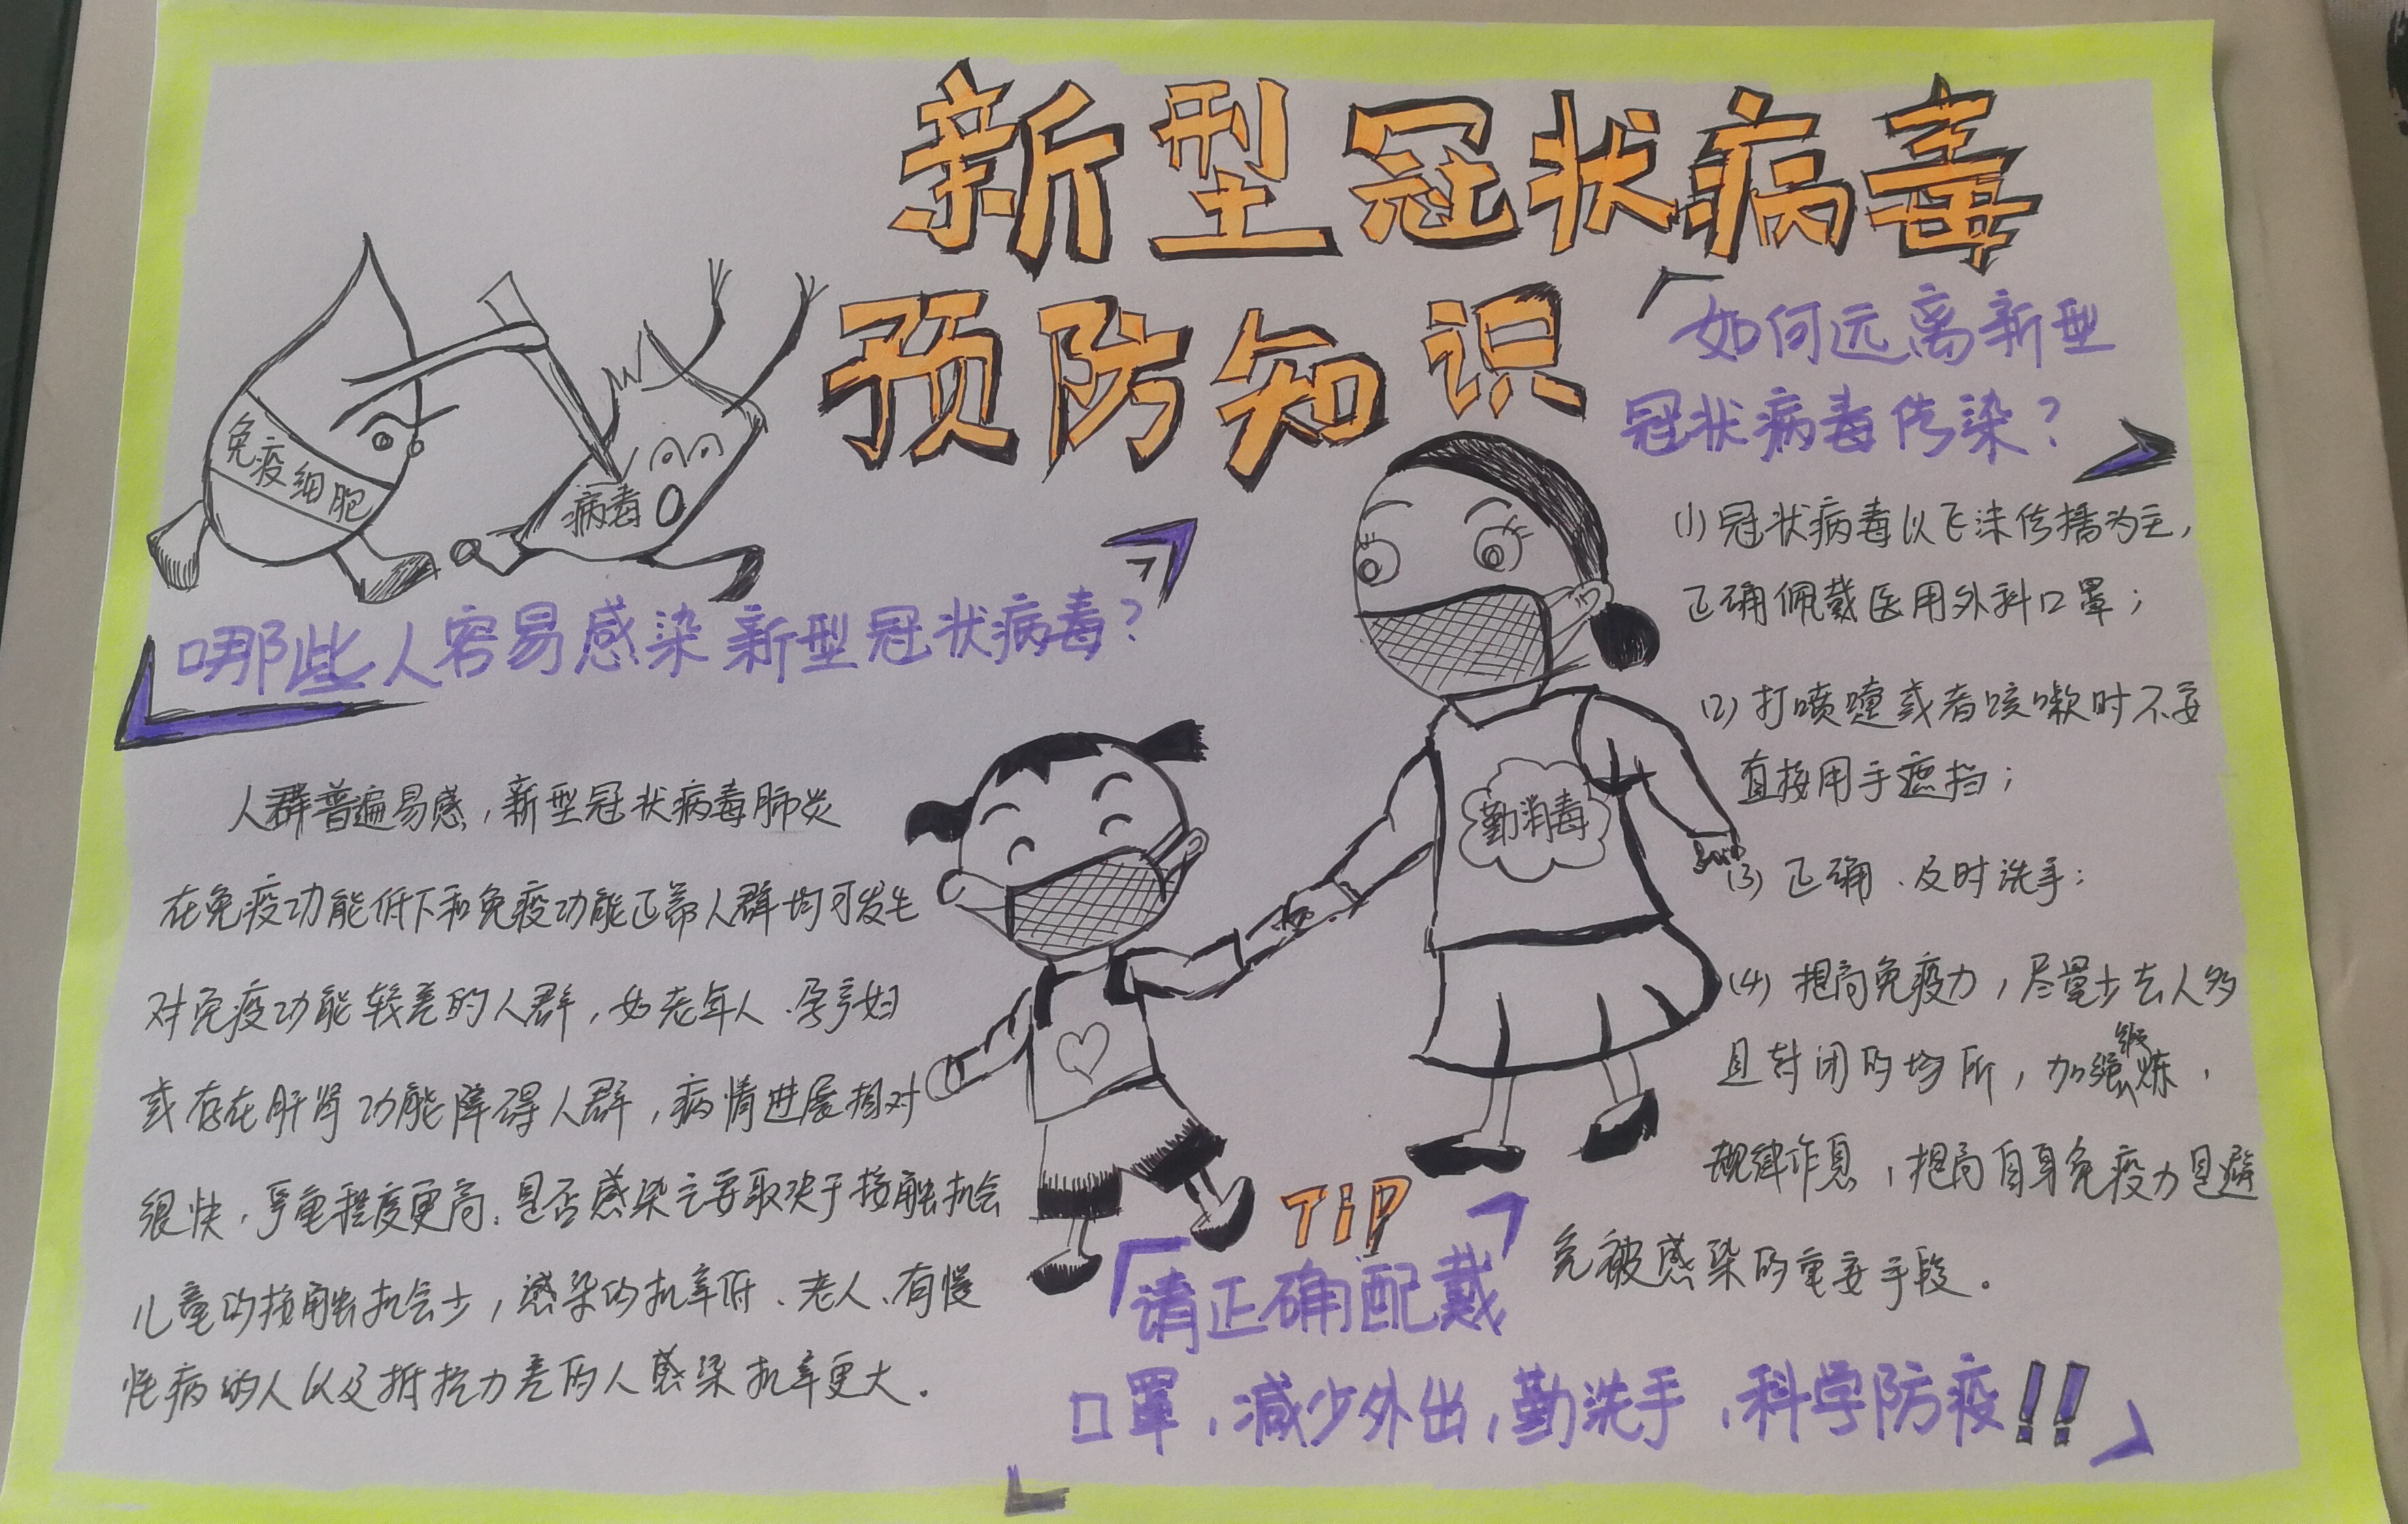 新型冠状病毒
预防知识
免疫细胞
病毒
哪些人容易感染新型冠状病毒?
人群普遍易感,新型冠状病毒肺炎
在免疫功能低下和免疫功能正常人群均可发生
对免疫功能较差的人群,如老年人、孕产妇
或存在肝肾功能障碍人群,病情进展相对
很快,严重程度更高。是否感染主要取决于接触机会
儿童的接触机会少,感染的机率低、老人、有慢
性病的人以及抵抗力差的人感染机率更大。
勤消毒
如何远离新型
冠状病毒传染?
(1)冠状病毒以飞沫传播为主,
正确佩戴医用外科口罩;
(2)打喷嚏或者咳嗽时不要
直接用手遮挡;
(3)正确、及时洗手;
(4)提高免疫力,尽量少去人多
且封闭的场所,加强锻炼,
规律作息,提高自身免疫力是避
免被感染的重要手段。
TiP
请正确配戴
口罩,减少外出,勤洗手,科学防疫!!